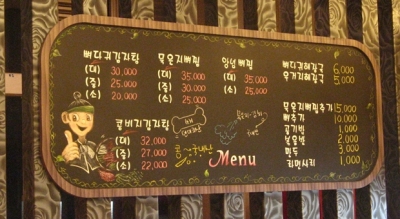 뼈다귀감자탕
(대) 30,000
(중) 25,000
(소) 20,000
묵은지뼈찜
(대) 35,000
(중) 30,000
(소) 25,000
양념뼈찜
(대) 35,000
(중) 30,000
(소) 25,000
뼈다귀해장국 6,000
우거지해장국 5,000
콩비지감자탕
(대) 32,000
(중) 27,000
(소) 22,000
묵은지뼈찜추가 15,000
뼈추가 10,000
공기밥 1,000
볶음밥 2,000
만두 3,000
라면사리 1,000
Menu